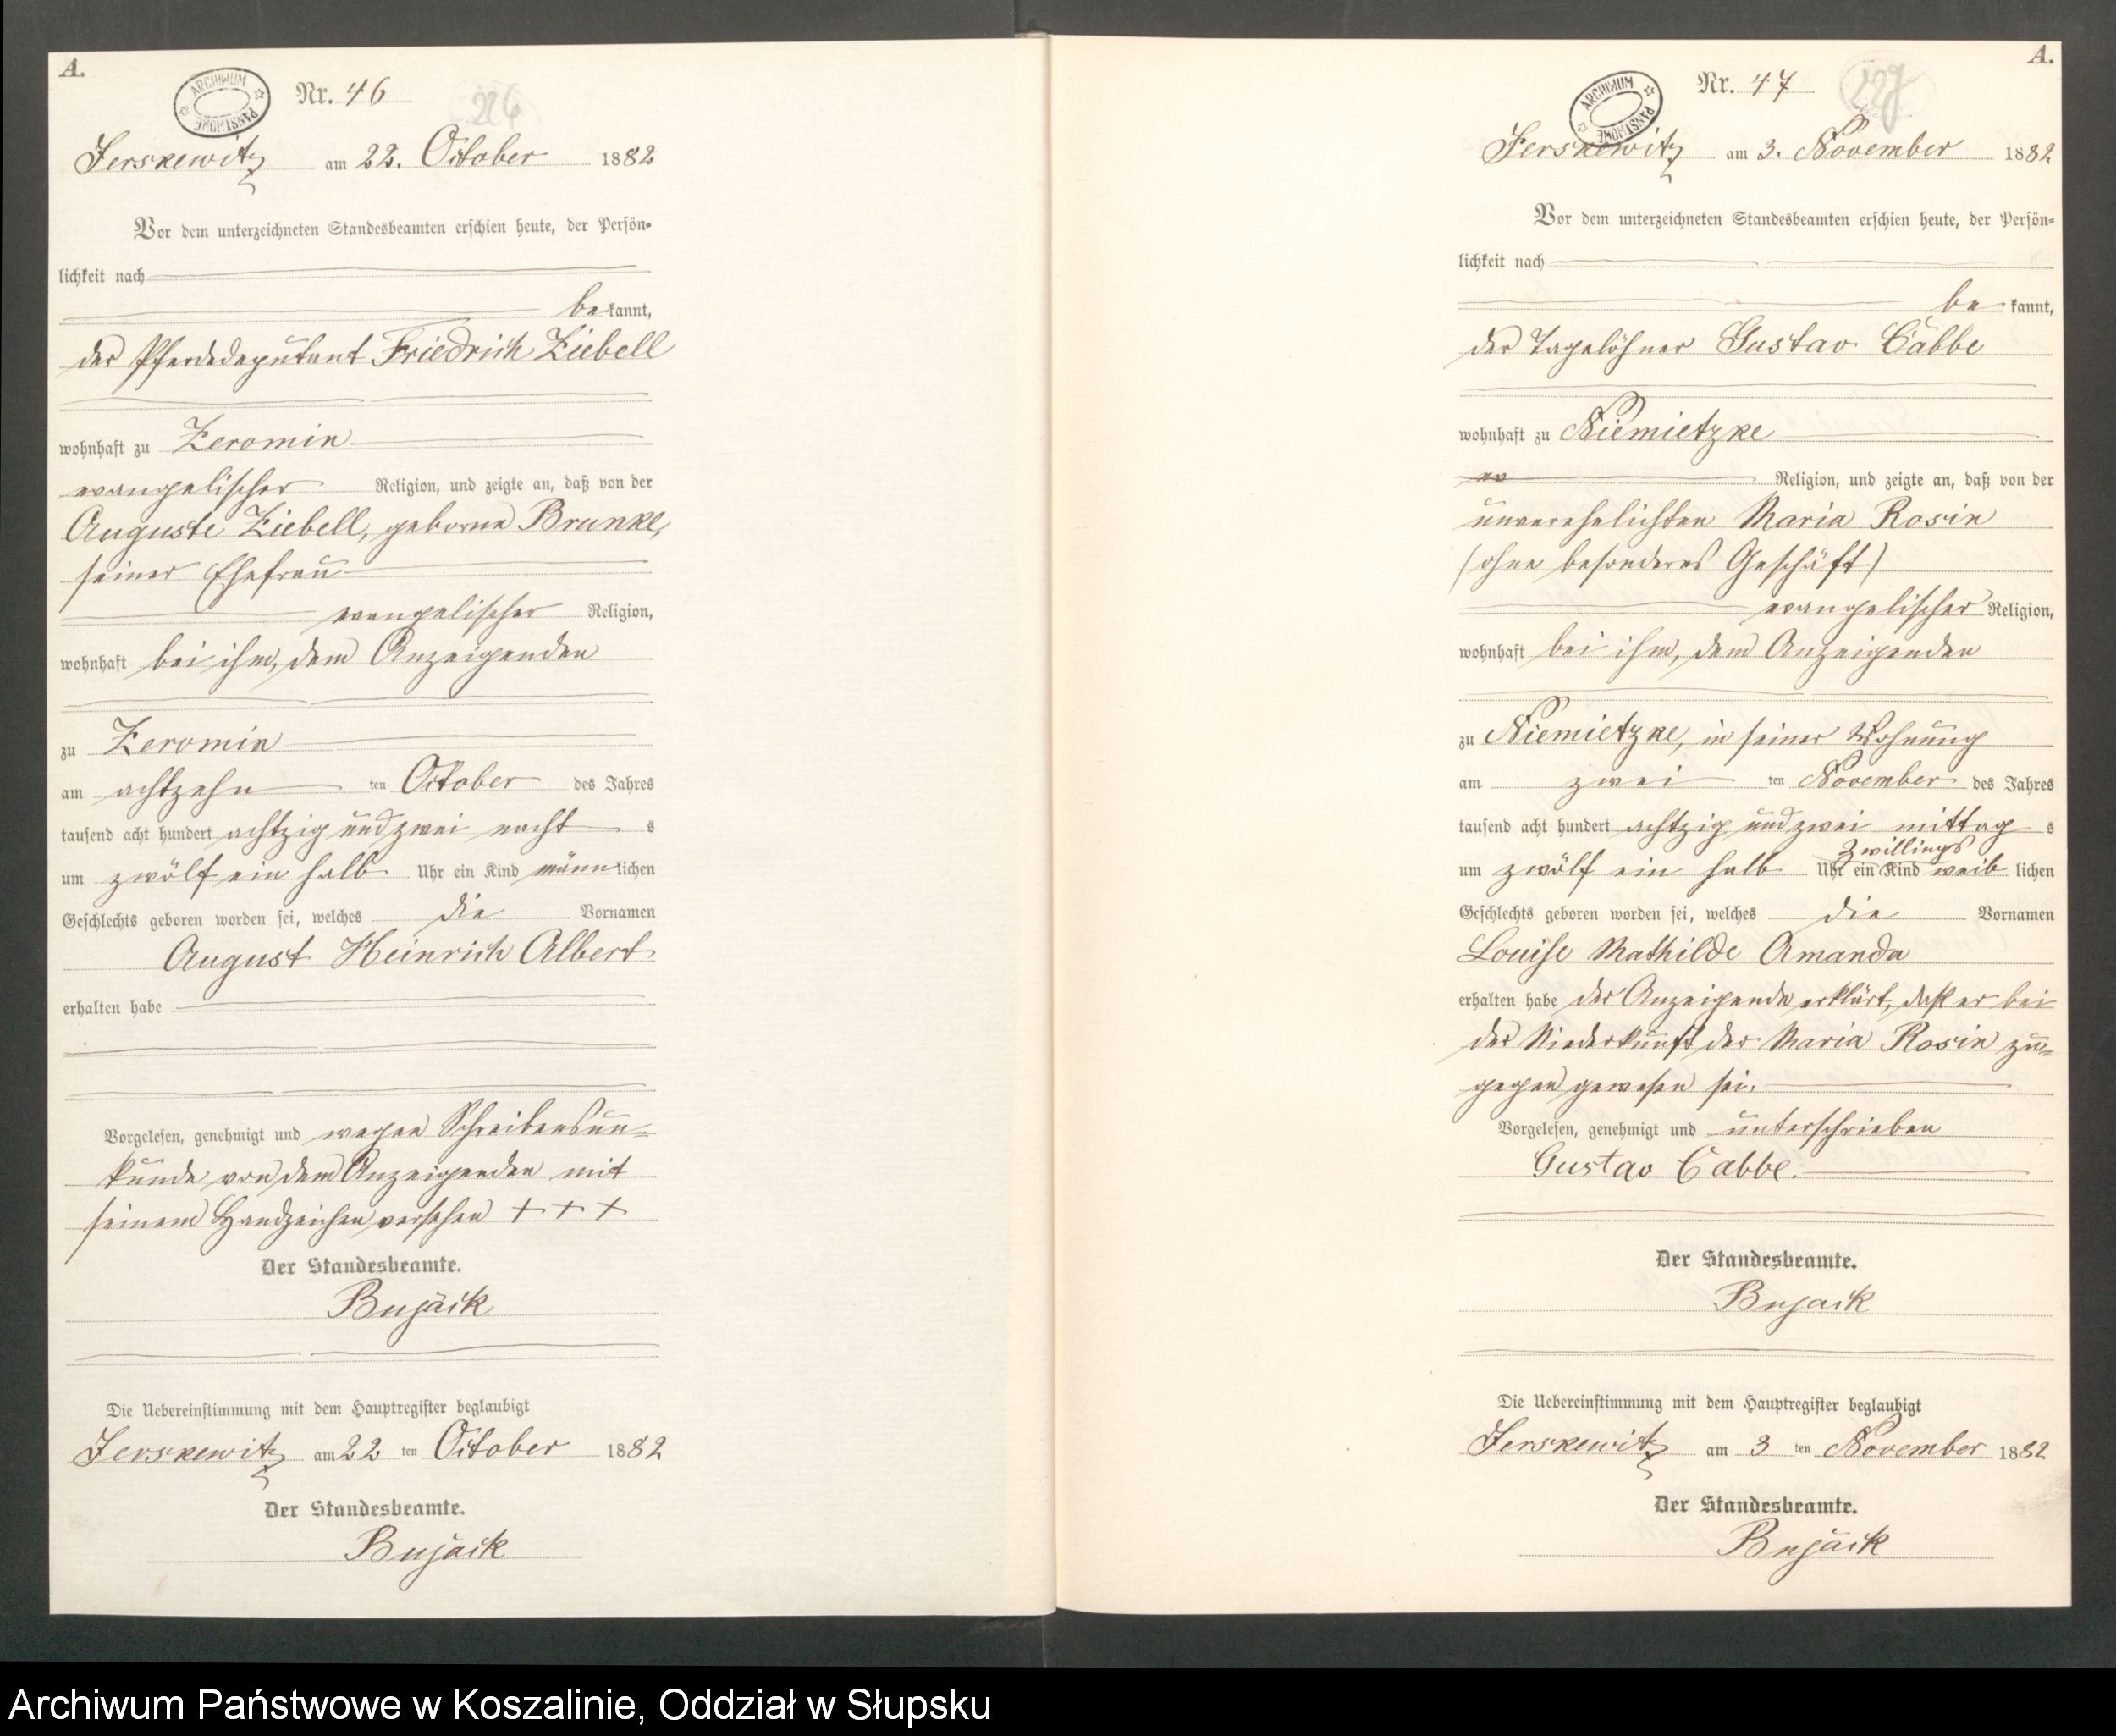 A.
ARCHIWUM PAŃSTWOWE
Nr. 46
226
Jerskewitz am 22. October 1882
Vor dem unterzeichneten Standesbeamten erschien heute, der Persön-
lichkeit nach
be kannt,
der Pferdedeputant Friedrich Ziebell
wohnhaft zu Zeromin
evangelischer Religion, und zeigte an, daß von der
Auguste Ziebell, geborne Brunke,
seiner Ehefrau
evangelischer Religion,
wohnhaft bei ihm, dem Anzeigenden
zu Zeromin
am achtzehn ten October des Jahres
tausend acht hundert achtzig und zwei nacht s
um zwölf ein halb Uhr ein Kind männ lichen
Geschlechts geboren worden sei, welches die Vornamen
August Heinrich Albert
erhalten habe
Vorgelesen, genehmigt und wegen Schreibensun-
kunde von dem Anzeigenden mit
seinem Handzeichen versehen + + +
Der Standesbeamte.
Bujack
Die Uebereinstimmung mit dem Hauptregister beglaubigt
Jerskewitz am 22 ten October 1882
Der Standesbeamte.
Bujack
A.
ARCHIWUM PAŃSTWOWE
Nr. 47
227
Jerskewitz am 3. November 1882
Vor dem unterzeichneten Standesbeamten erschien heute, der Persön-
lichkeit nach
be kannt,
der Tagelöhner Gustav Cabbe
wohnhaft zu Niemietzke
ev Religion, und zeigte an, daß von der
unverehelichten Maria Rosin
(ohne besonderes Geschäft)
evangelischer Religion,
wohnhaft bei ihm, dem Anzeigenden
zu Niemietzke, in seiner Wohnung
am zwei ten November des Jahres
tausend acht hundert achtzig und zwei mittag s
Zwillings
um zwölf ein halb Uhr ein Kind weib lichen
Geschlechts geboren worden sei, welches die Vornamen
Louise Mathilde Amanda
erhalten habe der Anzeigende erklärt, daß er bei
der Niederkunft der Maria Rosin zu-
gegen gewesen sei.
Vorgelesen, genehmigt und unterschrieben
Gustav Cabbe.
Der Standesbeamte.
Bujack
Die Uebereinstimmung mit dem Hauptregister beglaubigt
Jerskewitz am 3 ten November 1882
Der Standesbeamte.
Bujack
Archiwum Państwowe w Koszalinie, Oddział w Słupsku